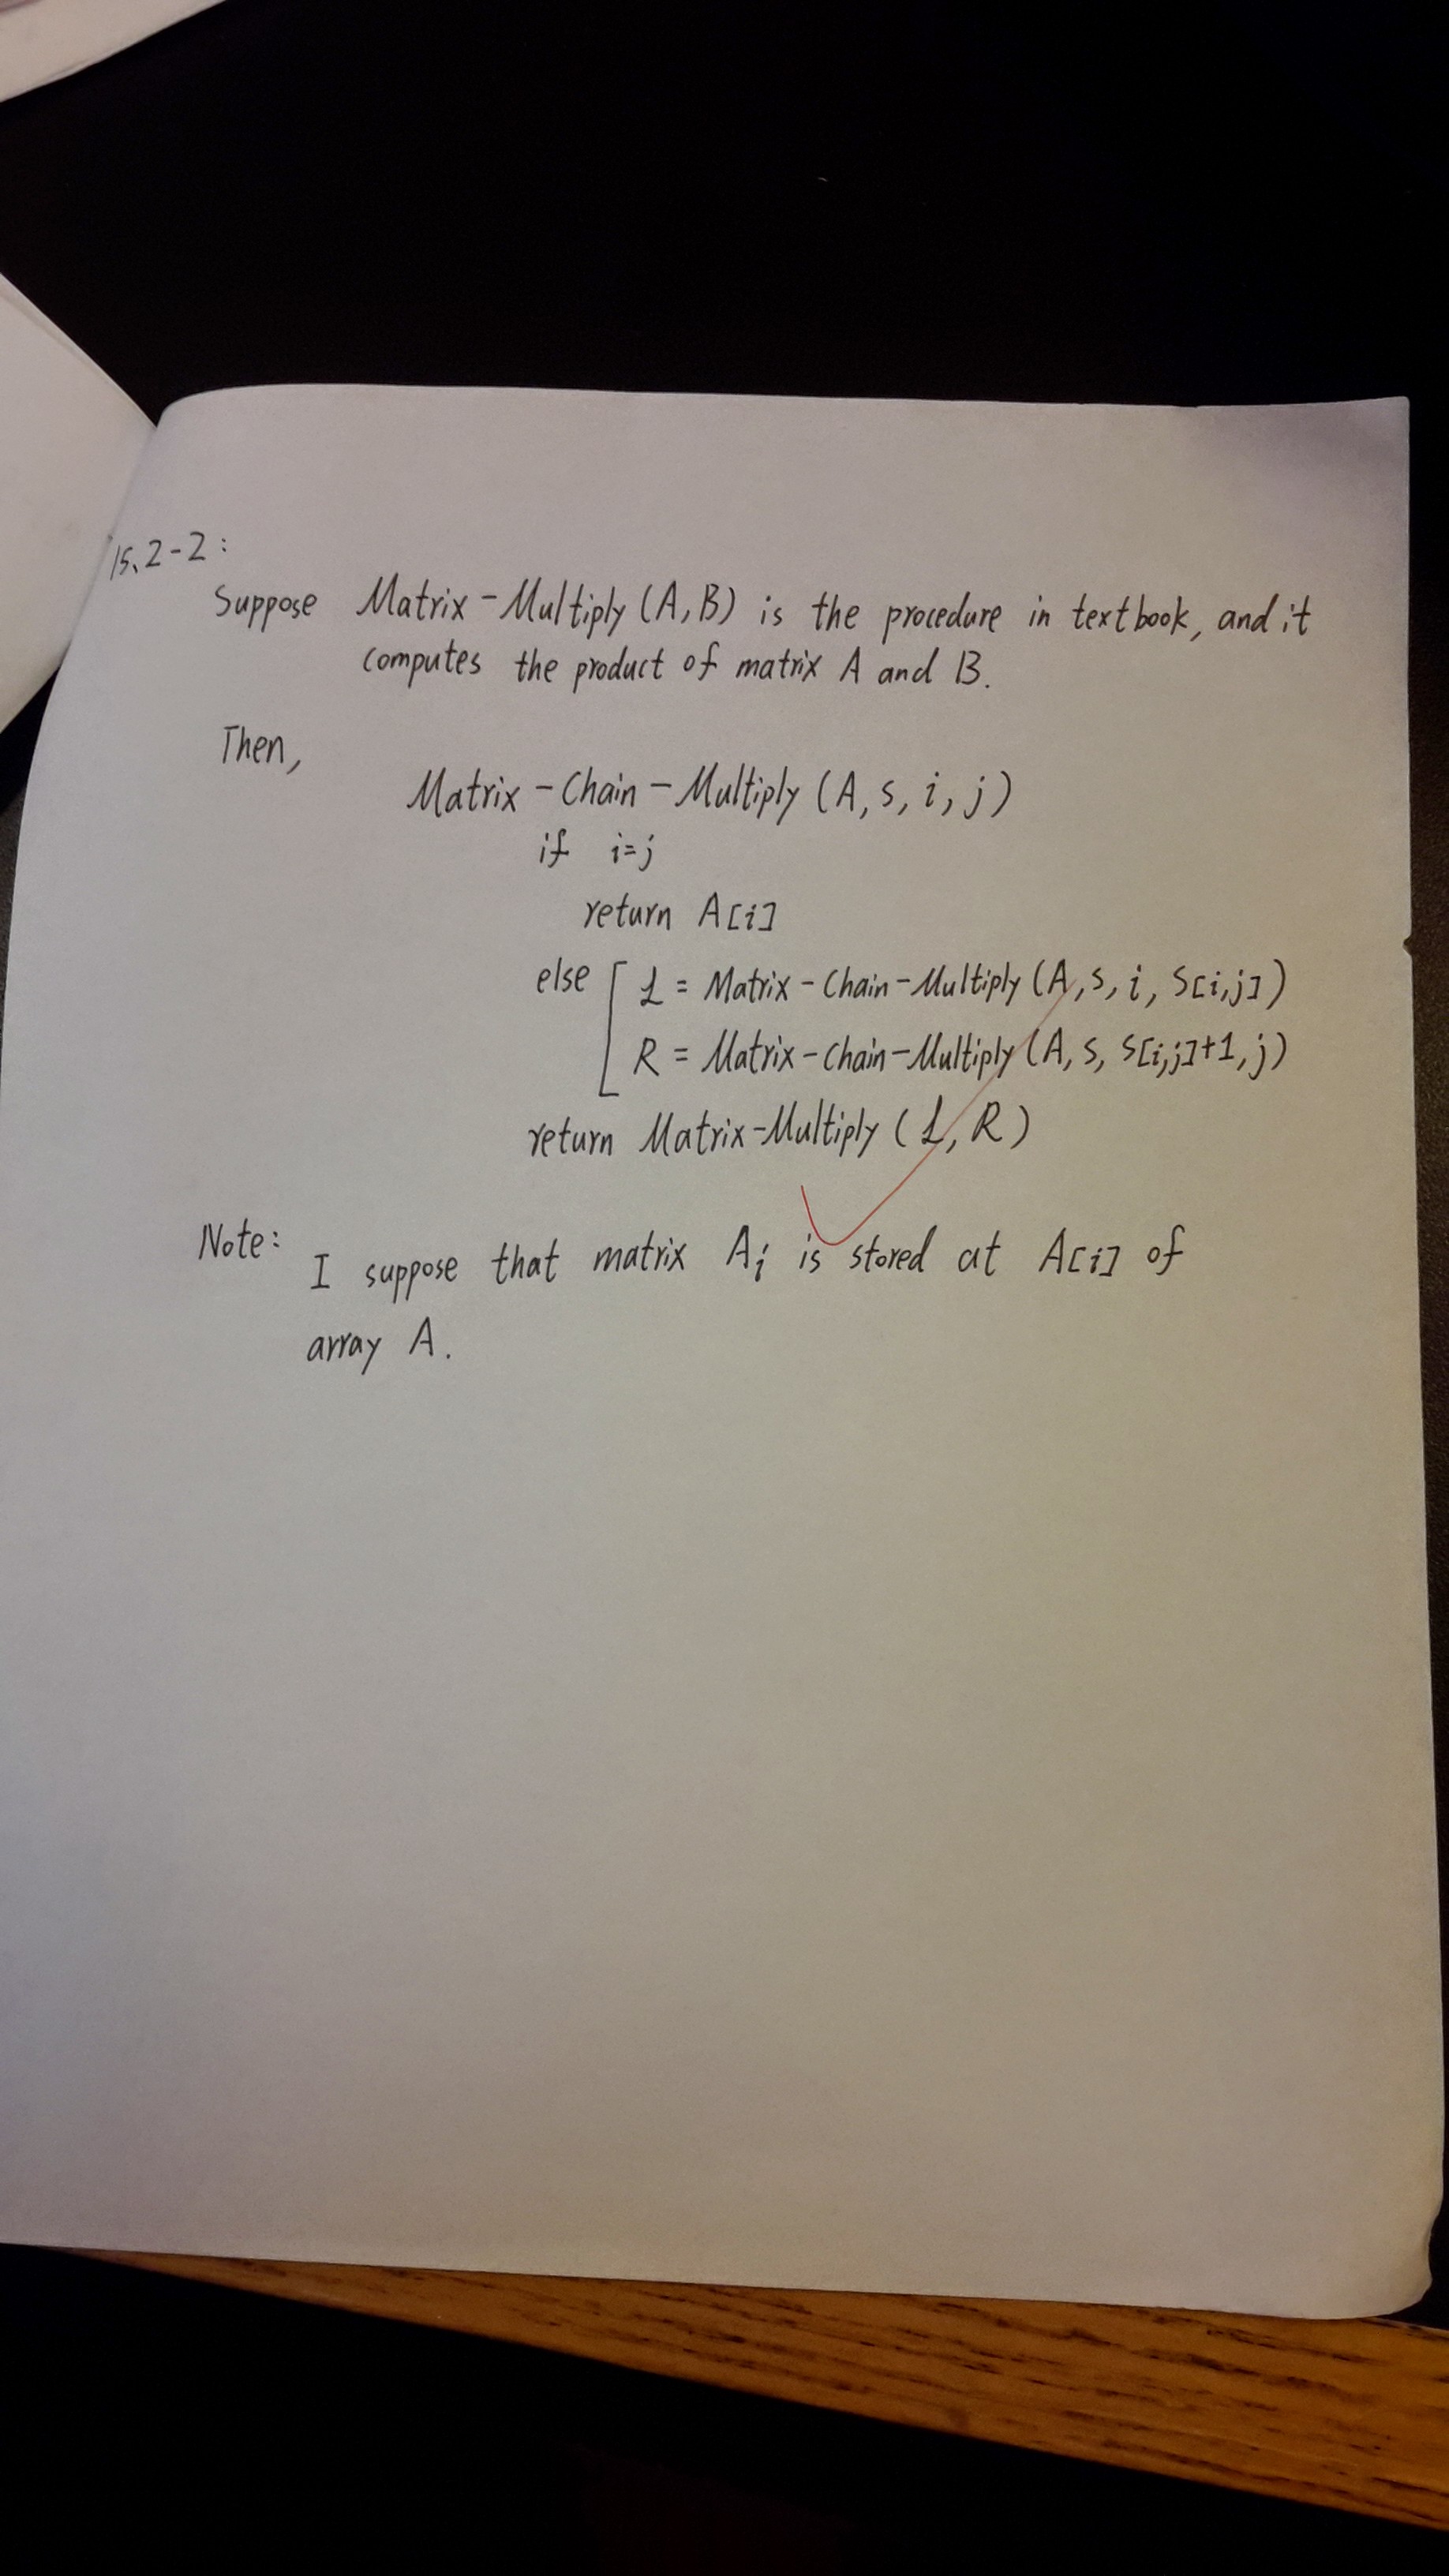 15.2-2:
Suppose Matrix-Multiply (A, B) is the procedure in textbook, and it
computes the product of matrix A and B.
Then,
Matrix-Chain-Multiply (A, s, i, j)
if i=j
return A[i]
else [ L = Matrix-Chain-Multiply (A, s, i, s[i,j])
R = Matrix-Chain-Multiply (A, s, s[i,j]+1, j)
return Matrix-Multiply (L, R)
Note: I suppose that matrix Ai is stored at A[i] of
array A.